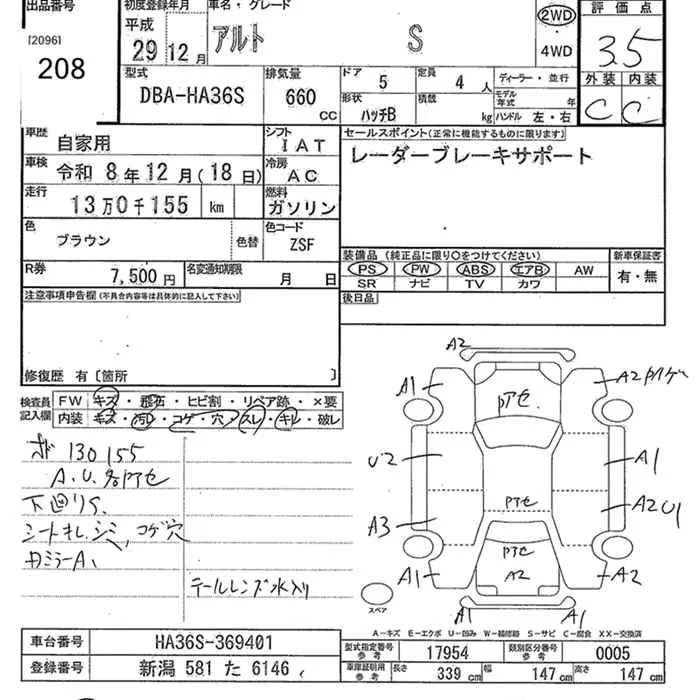 出品番号
[2096]
208
初度登録年月
平成
29年12月
車名・グレード
アルト S
2WD
4WD
評価点
3.5
外装 内装
C C
型式
DBA-HA36S
排気量
660 CC
ドア 5
形状 ハッチB
定員 4 人
積載 kg
ディーラー・並行
モデル年式 年
ハンドル 左・右
車歴 自家用
シフト IAT
車検 令和 8年12月(18日)
冷房 AC
走行 13万0千155 km
燃料 ガソリン
色 ブラウン 色替
色コード ZSF
R券 7,500円
名変通知期限 月 日
セールスポイント(正常に機能するものに限ります)
レーダーブレーキサポート
装備品(純正品に限り○をつけてください)
PS PW ABS エアB AW
SR ナビ TV カワ
新車保証書
有・無
後日品
注意事項申告欄(不具合内容等は具体的に記入して下さい)
修復歴 有〔箇所 〕
検査員記入欄
FW キズ・飛石・ヒビ割・リペア跡・×要
内装 キズ・汚れ・コゲ・穴・スレ・キレ・破レ
130155
A.U.各Pアセ
下回りS
シートキレ、シミ、コゲ穴
カミラーA、
テールレンズ水入り
A2
A1
A2
Pアセ
U2
A1
Pアセ
A2 U1
A3
Pアセ
A2
A1
A2
A1
A1
スペア
A-キズ E-エクボ U-凹み W-補修跡 S-サビ C-腐食 XX-交換済
車台番号 HA36S-369401
登録番号 新潟 581 た 6146
型式指定番号 参考 17954
類別区分番号 参考 0005
車庫証明用 参考
長さ 339 cm
幅 147 cm
高さ 147 cm